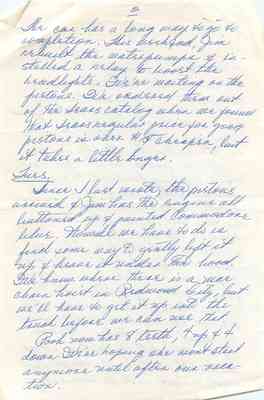 The car has a long way to go to
completion. Her husband, Jim
rebuilt the waterpumps & in-
stalled a relay to boost the
headlights. I'm waiting on the
pistons. I'm ordered them out
of the Sears catalog when we found
that Sears regular price for good
pistons is over cheaper, but
it takes a little longer.
Tues.
Since I last wrote, the pistons
arrived & Jim has the engine all
buttoned up & painted Commodore
blue. Now all we have to do is
find some way to gently lift it
up & heave it under the hood.
We know where there is a
chain hoist in Redwood City, but
we'll have to get it up into the
truck before we can use that.
Pook now has 8 teeth, 4 up & 4
down. We're hoping she won't get
anymore until after our vaca-
tion.